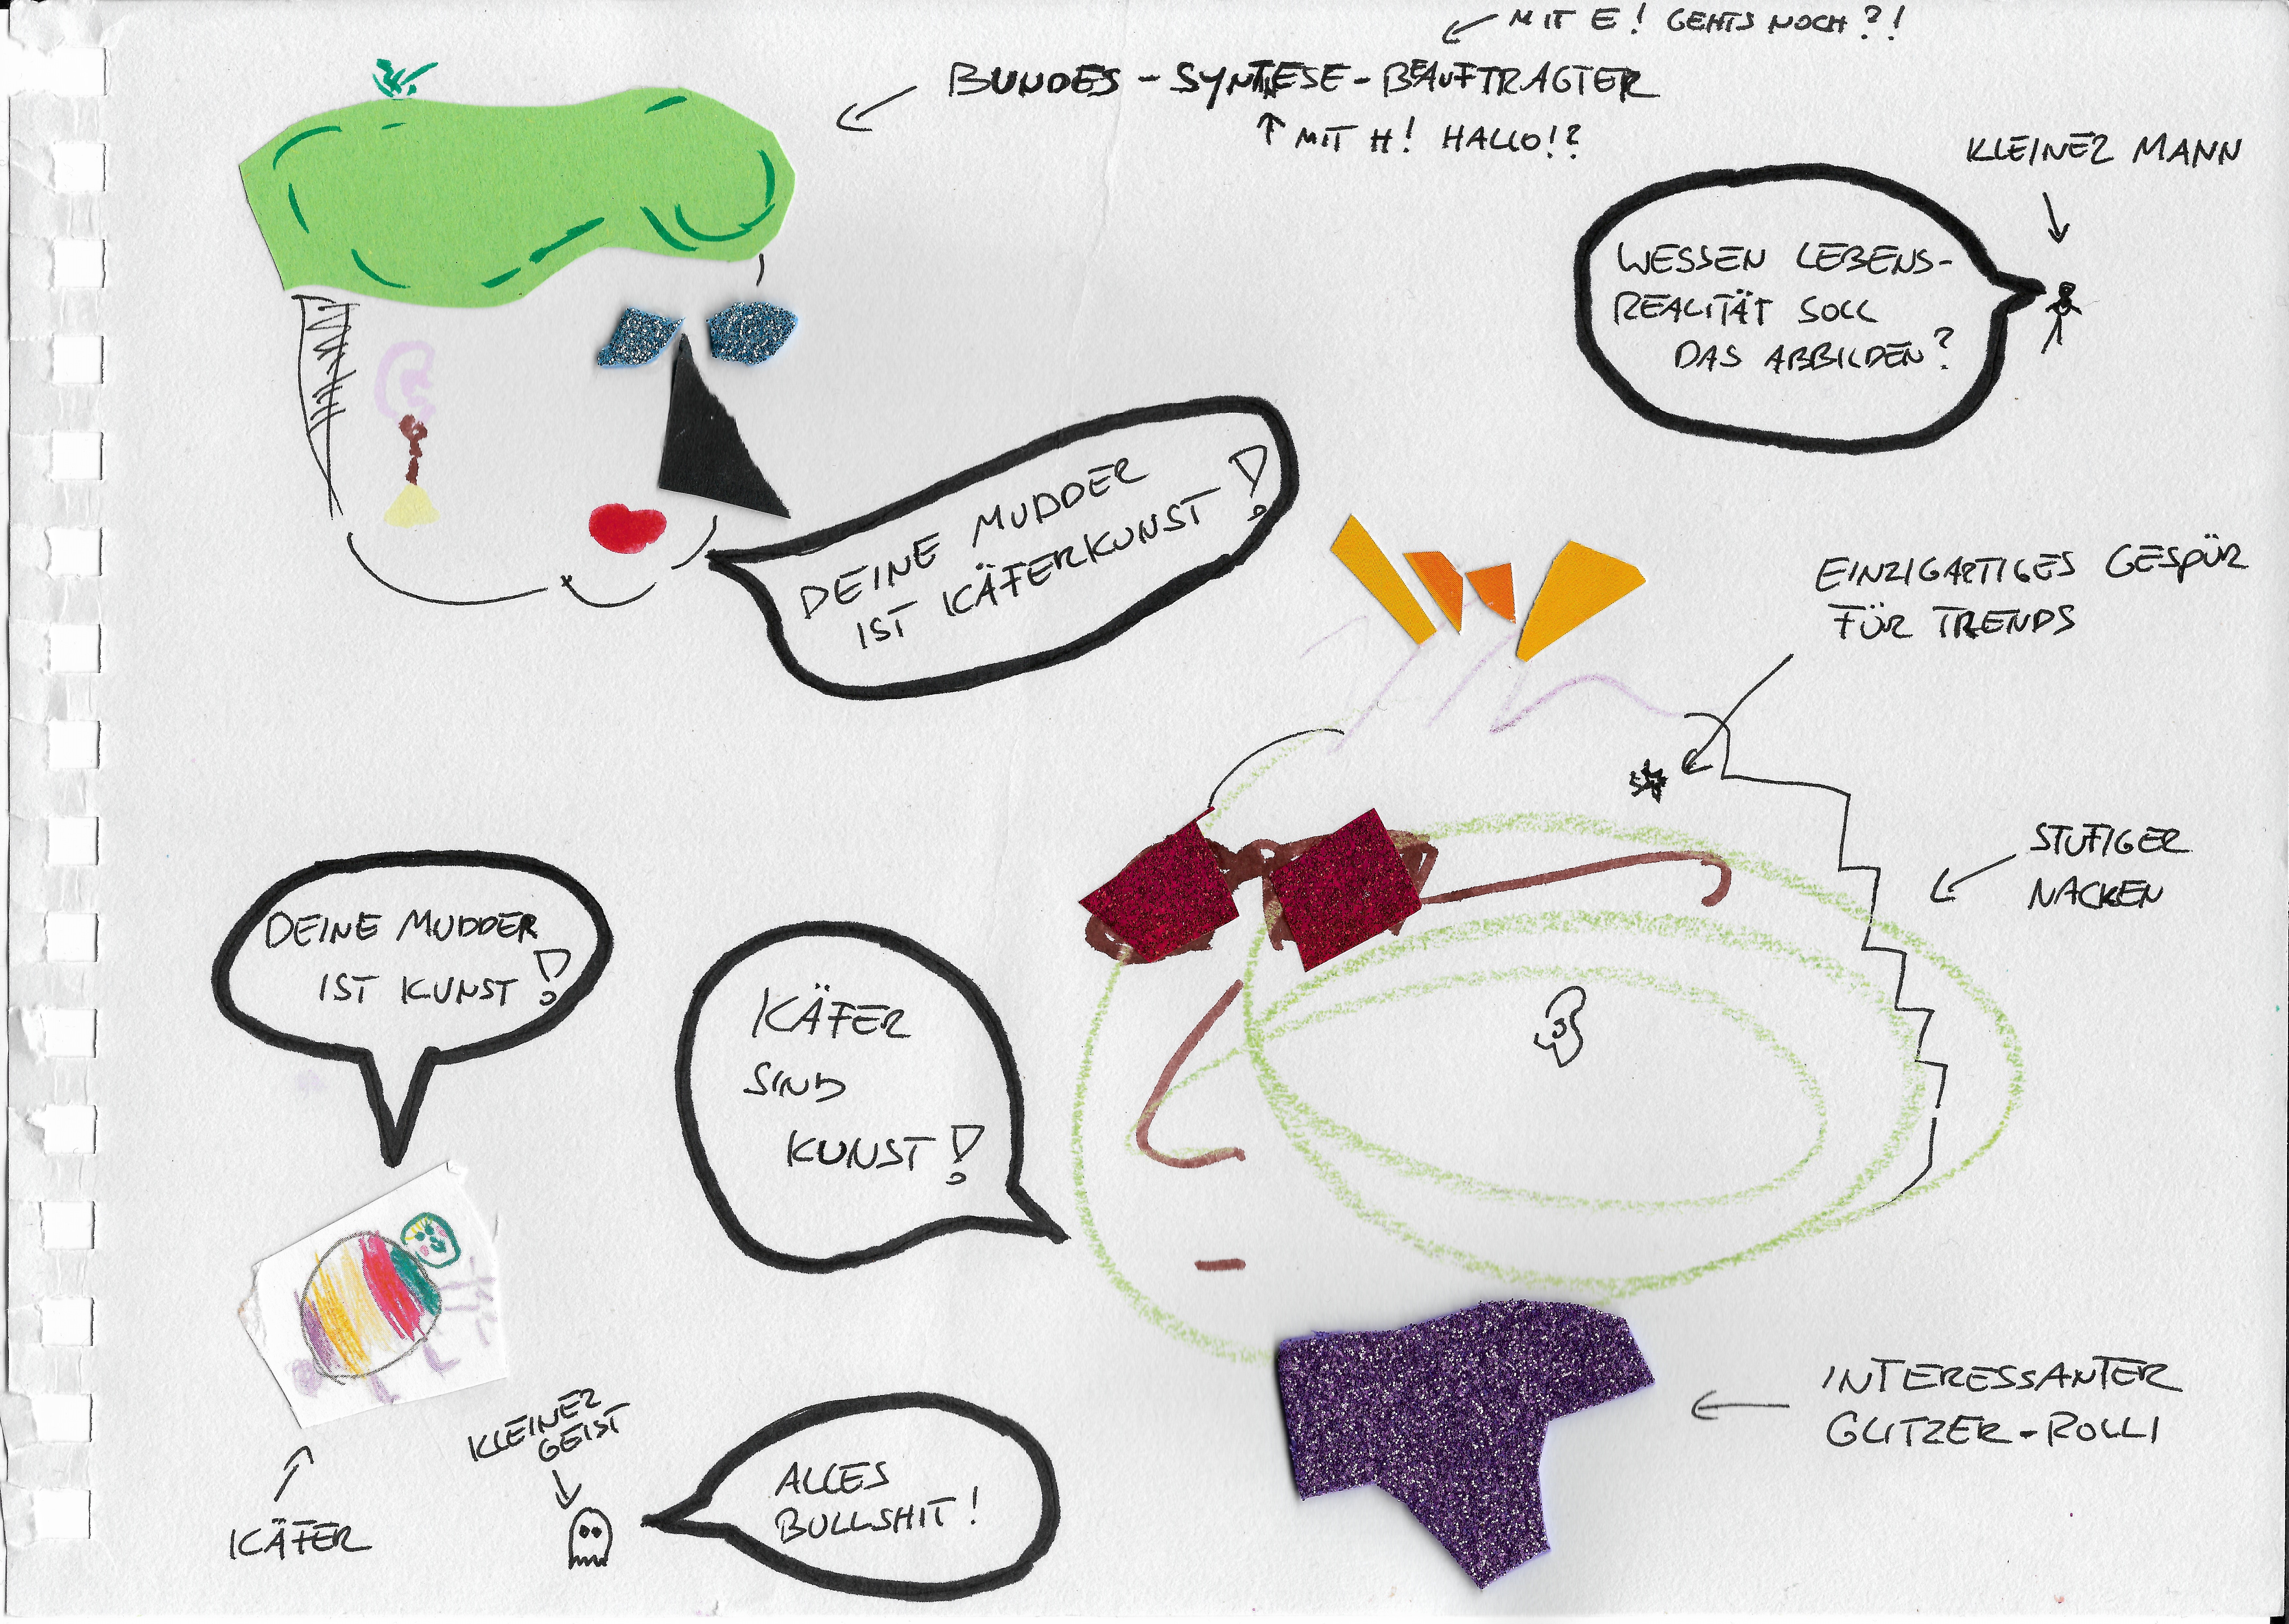 MIT E! GEHTS NOCH?!
BUNDES-SYNTHESE-BEAUFTRAGTER
MIT H! HALLO!?
KLEINER MANN
WESSEN LEBENS-
REALITÄT SOLL
DAS ABBILDEN?
DEINE MUDDER
IST KÄFERKUNST!
EINZIGARTIGES GESPÜR
FÜR TRENDS
STUFIGER
NACKEN
DEINE MUDDER
IST KUNST!
KÄFER
SIND
KUNST!
INTERESSANTER
GLITZER-ROLLI
KLEINER
GEIST
ALLES
BULLSHIT!
KÄFER